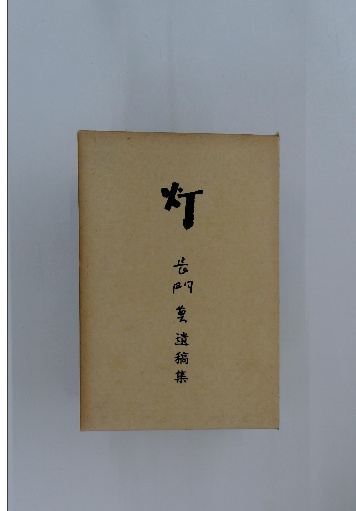 灯
長門莫遺稿集